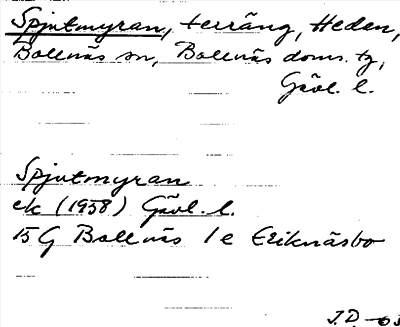 Spjutmyran, terräng, Heden,
Bollnäs sn, Bollnäs doms. tg,
Gävl. l.
Spjutmyran
ek (1958) Gävl. l.
15 G Bollnäs 1 e Eriknäsbo
J.D. -63